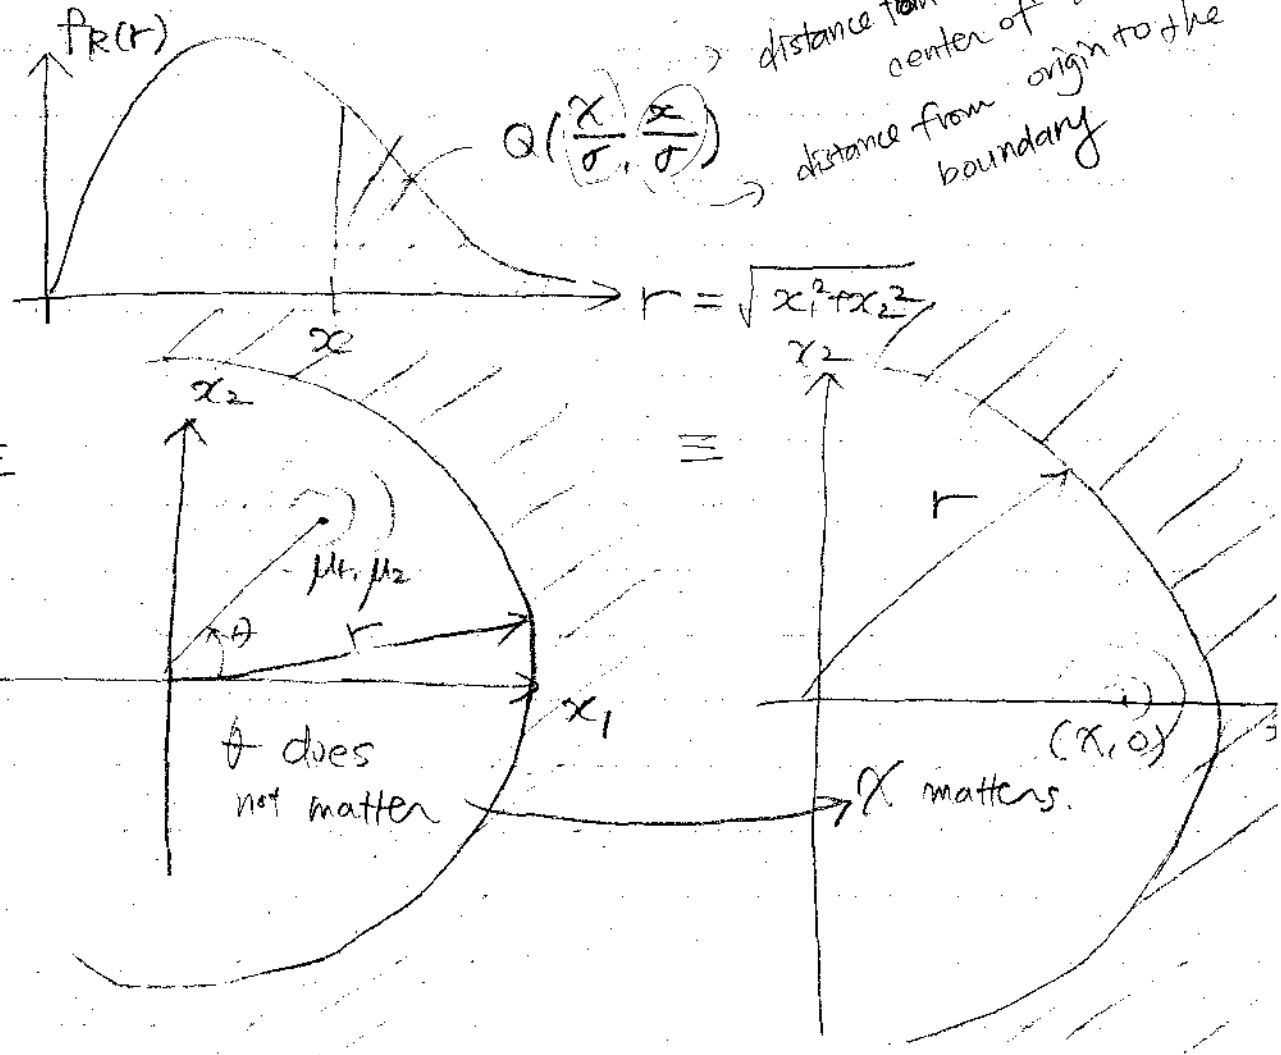 f_R(r)
distance from
center of
Q(χ/σ, x/σ)
distance from origin to the
boundary
x
r = √(x₁²+x₂²)
x₂
x₂
≡
μ₁, μ₂
θ
r
x₁
θ does
not matter
r
(χ, 0)
χ matters.